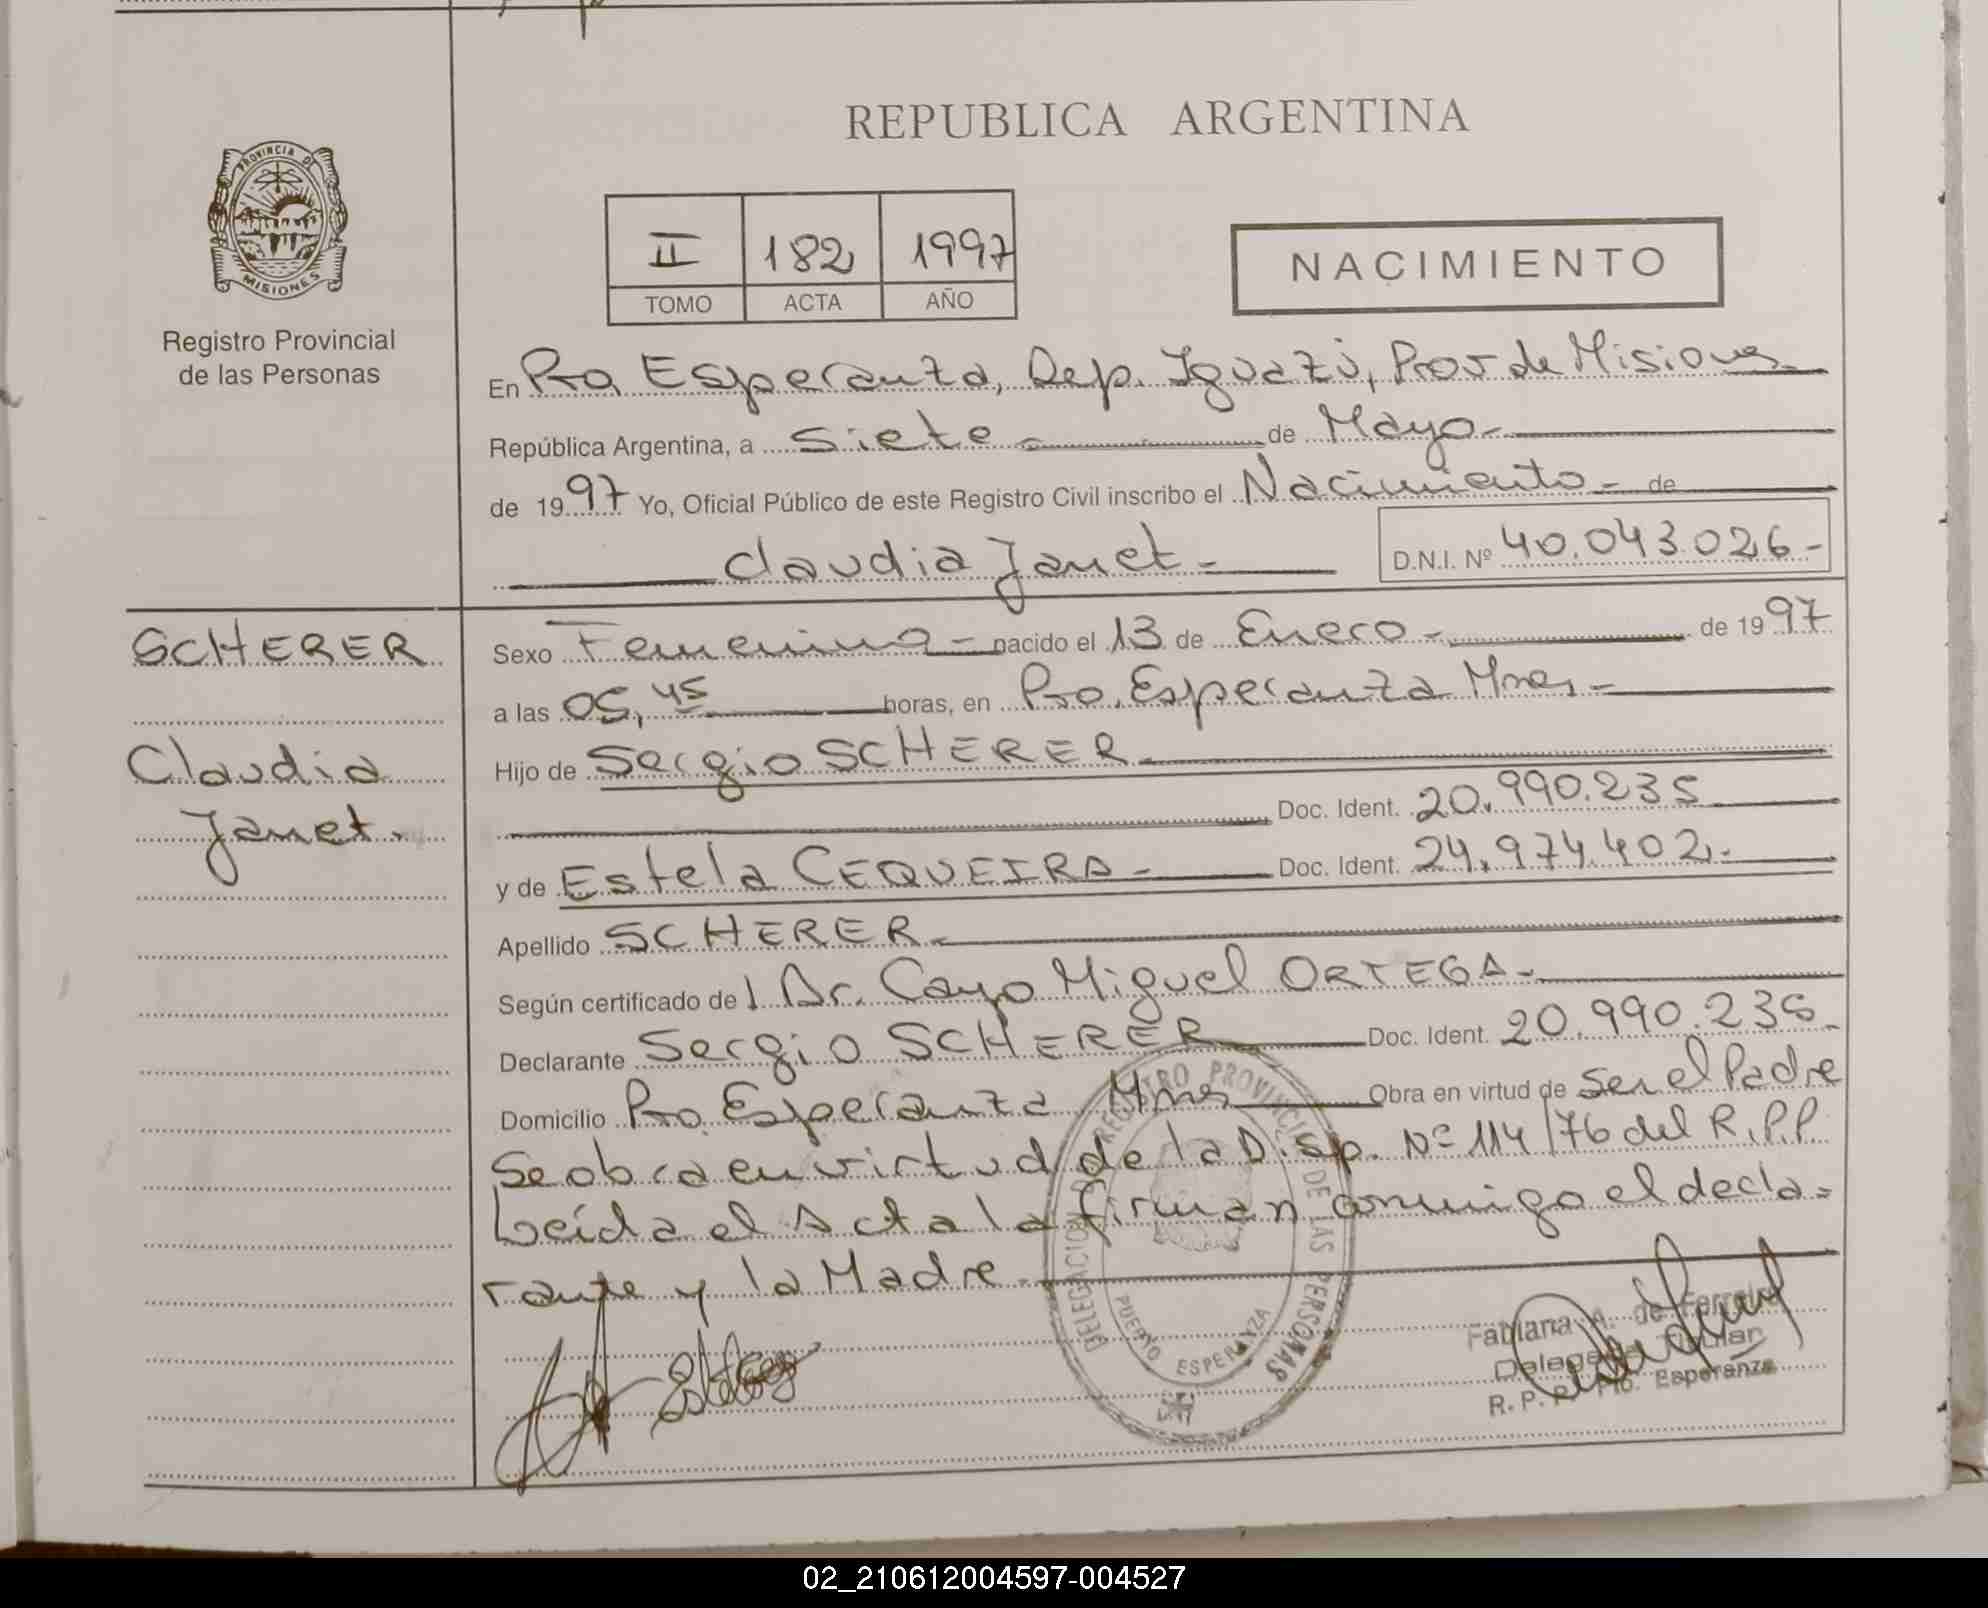 REPUBLICA ARGENTINA
PROVINCIA DE
MISIONES
Registro Provincial
de las Personas
II 182 1997
TOMO ACTA AÑO
NACIMIENTO
En Pto. Esperanza, Dep. Iguazú, Prov de Misiones
República Argentina, a siete - de Mayo-
de 1997 Yo, Oficial Público de este Registro Civil inscribo el Nacimiento - de
Claudia Janet - D.N.I. Nº 40.043.026-
SCHERER
Claudia
Janet.
Sexo Femenino - nacido el 13 de Enero - de 1997
a las 05,45 horas, en Pto. Esperanza Mnes -
Hijo de Sergio SCHERER -
Doc. Ident. 20.990.235
y de Estela CEQUEIRA - Doc. Ident. 24.974.402.-
Apellido SCHERER -
Según certificado del Dr. Cayo Miguel ORTEGA -
Declarante Sergio SCHERER Doc. Ident. 20.990.235 -
Domicilio Pto. Esperanza Mnes Obra en virtud de ser el Padre
Se obra en virtud de la Disp. Nº 114/76 del R.P.P.
Leída el Acta la firman conmigo el decla-
rante y la Madre -
DELEGACION REGISTRO PROVINCIAL DE LAS PERSONAS
PUERTO ESPERANZA
Fabiana A. de Ferreira
Delegada Titular
R.P.P. Pto. Esperanza
02_210612004597-004527